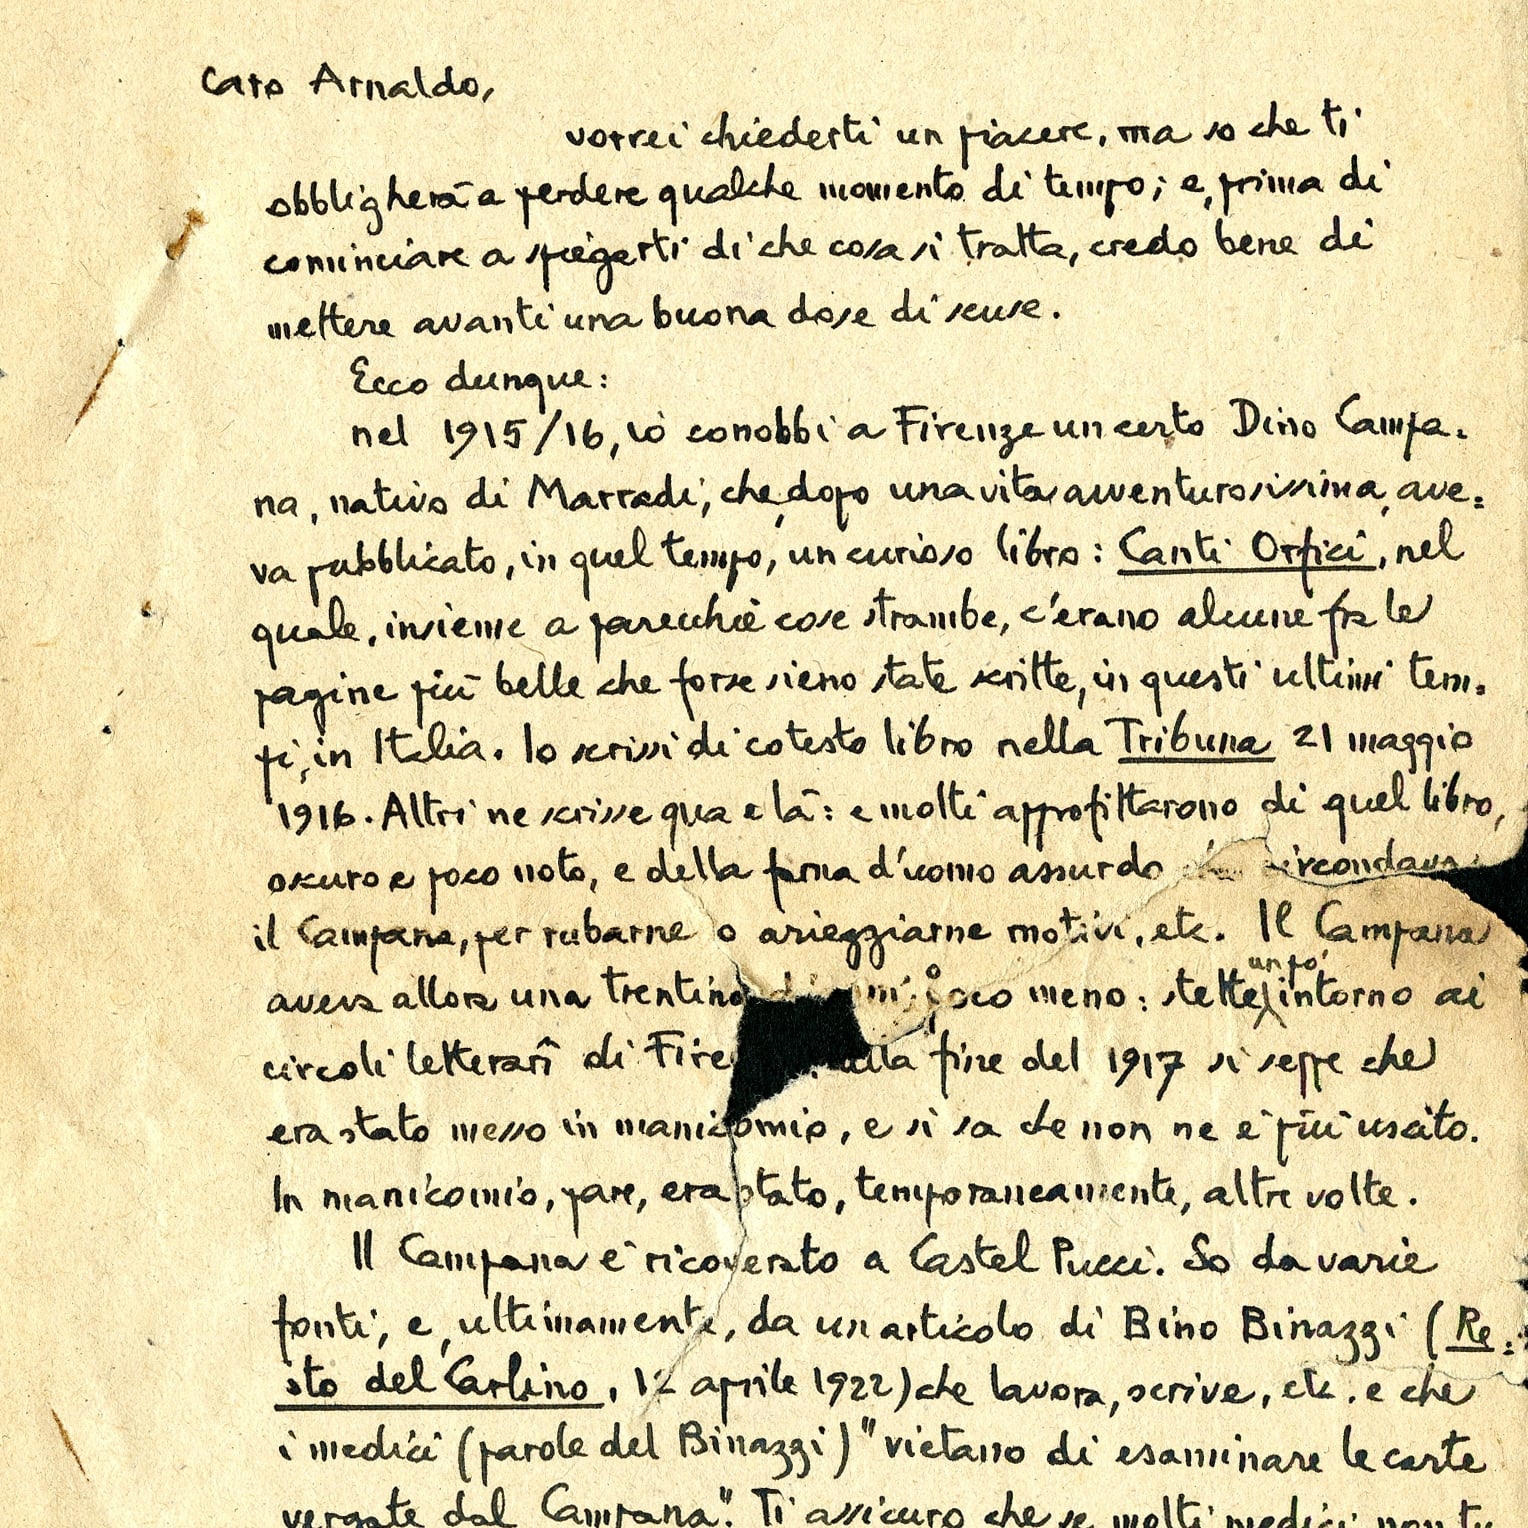 Caro Arnaldo,
vorrei chiederti un piacere, ma so che ti
obbligherà a perdere qualche momento di tempo; e, prima di
cominciare a spiegarti di che cosa si tratta, credo bene di
mettere avanti una buona dose di scuse.
Ecco dunque:
nel 1915/16, io conobbi a Firenze un certo Dino Campa-
na, nativo di Marradi, che, dopo una vita avventurosissima, ave=
va pubblicato, in quel tempo, un curioso libro: Canti Orfici, nel
quale, insieme a parecchie cose strambe, c'erano alcune fra le
pagine più belle che forse sieno state scritte, in questi ultimi tem=
pi, in Italia. Io scrissi di cotesto libro nella Tribuna 21 maggio
1916. Altri ne scrisse qua e là: e molti approfittarono di quel libro,
oscuro e poco noto, e della fama d'uomo assurdo che circondava
il Campana, per rubarne o arieggiarne motivi, etc. Il Campana
aveva allora una trentina d'anni o poco meno: stette un po' intorno ai
circoli letterarî di Fire alla fine del 1917 si seppe che
era stato messo in manicomio, e si sa che non ne è più uscito.
In manicomio, pare, era stato, temporaneamente, altre volte.
Il Campana è ricoverato a Castel Pucci. So da varie
fonti, e, ultimamente, da un articolo di Bino Binazzi (Re=
sto del Carlino, 12 aprile 1922) che lavora, scrive, etc. e che
i medici (parole del Binazzi) "vietano di esaminare le carte
vergate dal Campana". Ti assicuro che se molti medici non tu